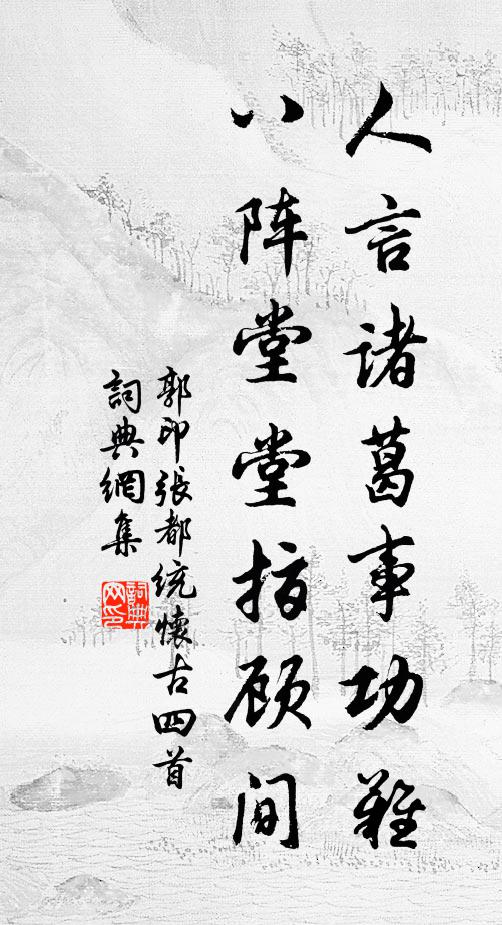 人言诸葛事功难
八阵堂堂指顾间
郭印張都统懷古四首
詞典網集
詞典网印